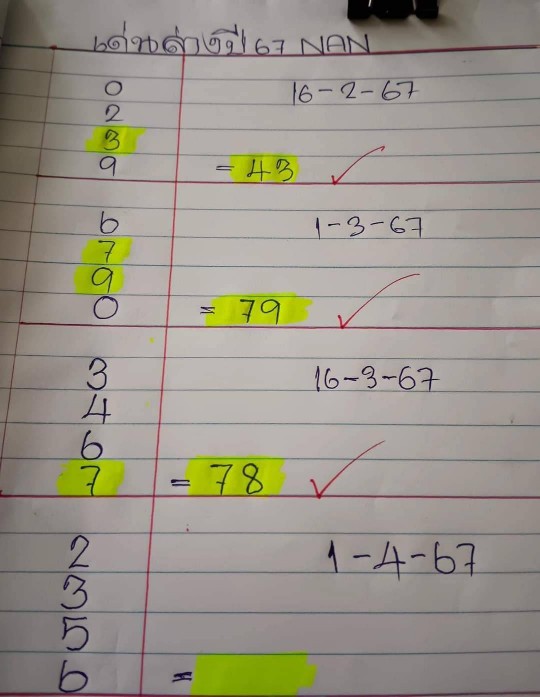 เด่นล่างปี67 NAN
0
16-2-67
2
3
9 = 43
6
1-3-67
7
9
0 = 79
3
16-3-67
4
6
7 = 78
2
1-4-67
3
5
6 =